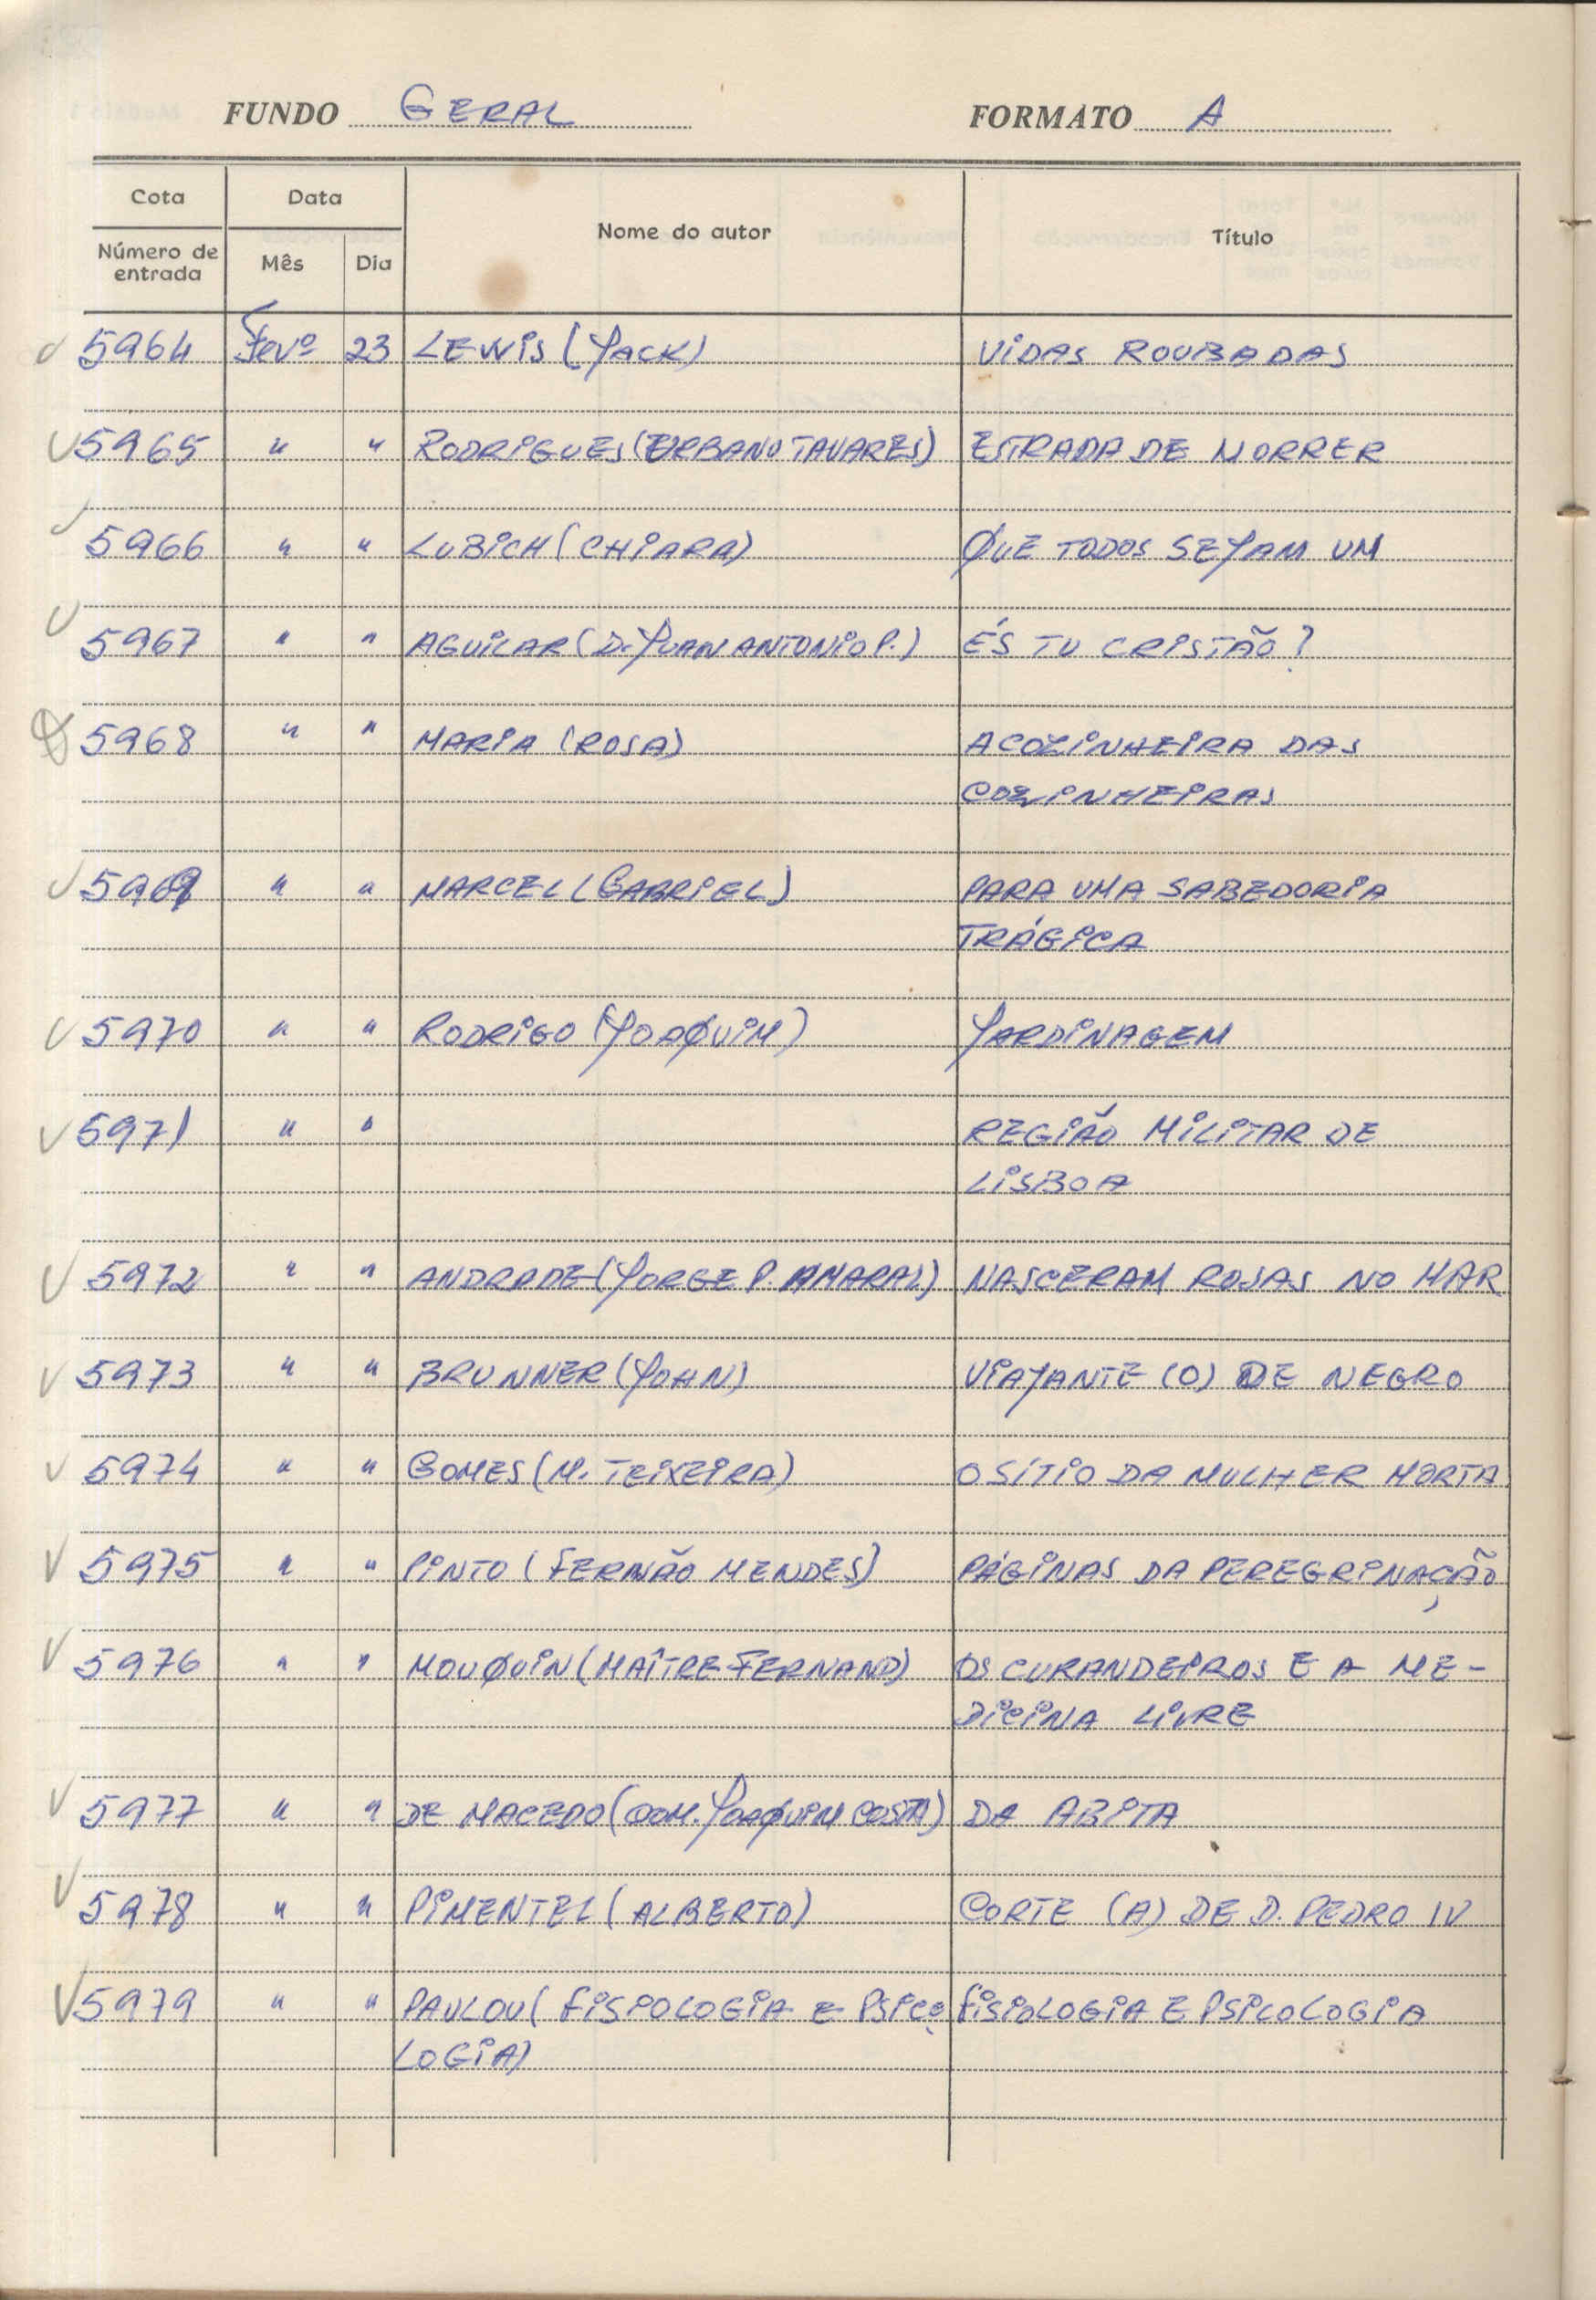 FUNDO GERAL FORMATO A
Cota Data Nome do autor Título
Número de entrada Mês Dia
5964 Fevº 23 LEWIS (JACK) VIDAS ROUBADAS
5965 " " RODRIGUES (URBANO TAVARES) ESTRADA DE MORRER
5966 " " LUBICH (CHIARA) QUE TODOS SEJAM UM
5967 " " AGUILAR (D. JUAN ANTONIO P.) ÉS TU CRISTÃO?
5968 " " MARIA (ROSA) A COZINHEIRA DAS
COZINHEIRAS
5969 " " MARCEL (GABRIEL) PARA UMA SABEDORIA
TRÁGICA
5970 " " RODRIGO (JOAQUIM) JARDINAGEM
5971 " " REGIÃO MILITAR DE
LISBOA
5972 " " ANDRADE (JORGE P. AMARAL) NASCERAM ROSAS NO MAR
5973 " " BRUNNER (JOHN) VIAJANTE (O) DE NEGRO
5974 " " GOMES (M. TEIXEIRA) O SÍTIO DA MULHER MORTA
5975 " " PINTO (FERNÃO MENDES) PÁGINAS DA PEREGRINAÇÃO
5976 " " MOUQUIN (MAÎTRE FERNAND) OS CURANDEIROS E A ME-
DICINA LIVRE
5977 " " DE MACEDO (DOM. JOAQUIM COSTA) DA ABITA
5978 " " PIMENTEL (ALBERTO) CORTE (A) DE D. PEDRO IV
5979 " " PAVLOV (FISIOLOGIA E PSICO FISIOLOGIA E PSICOLOGIA
LOGIA)